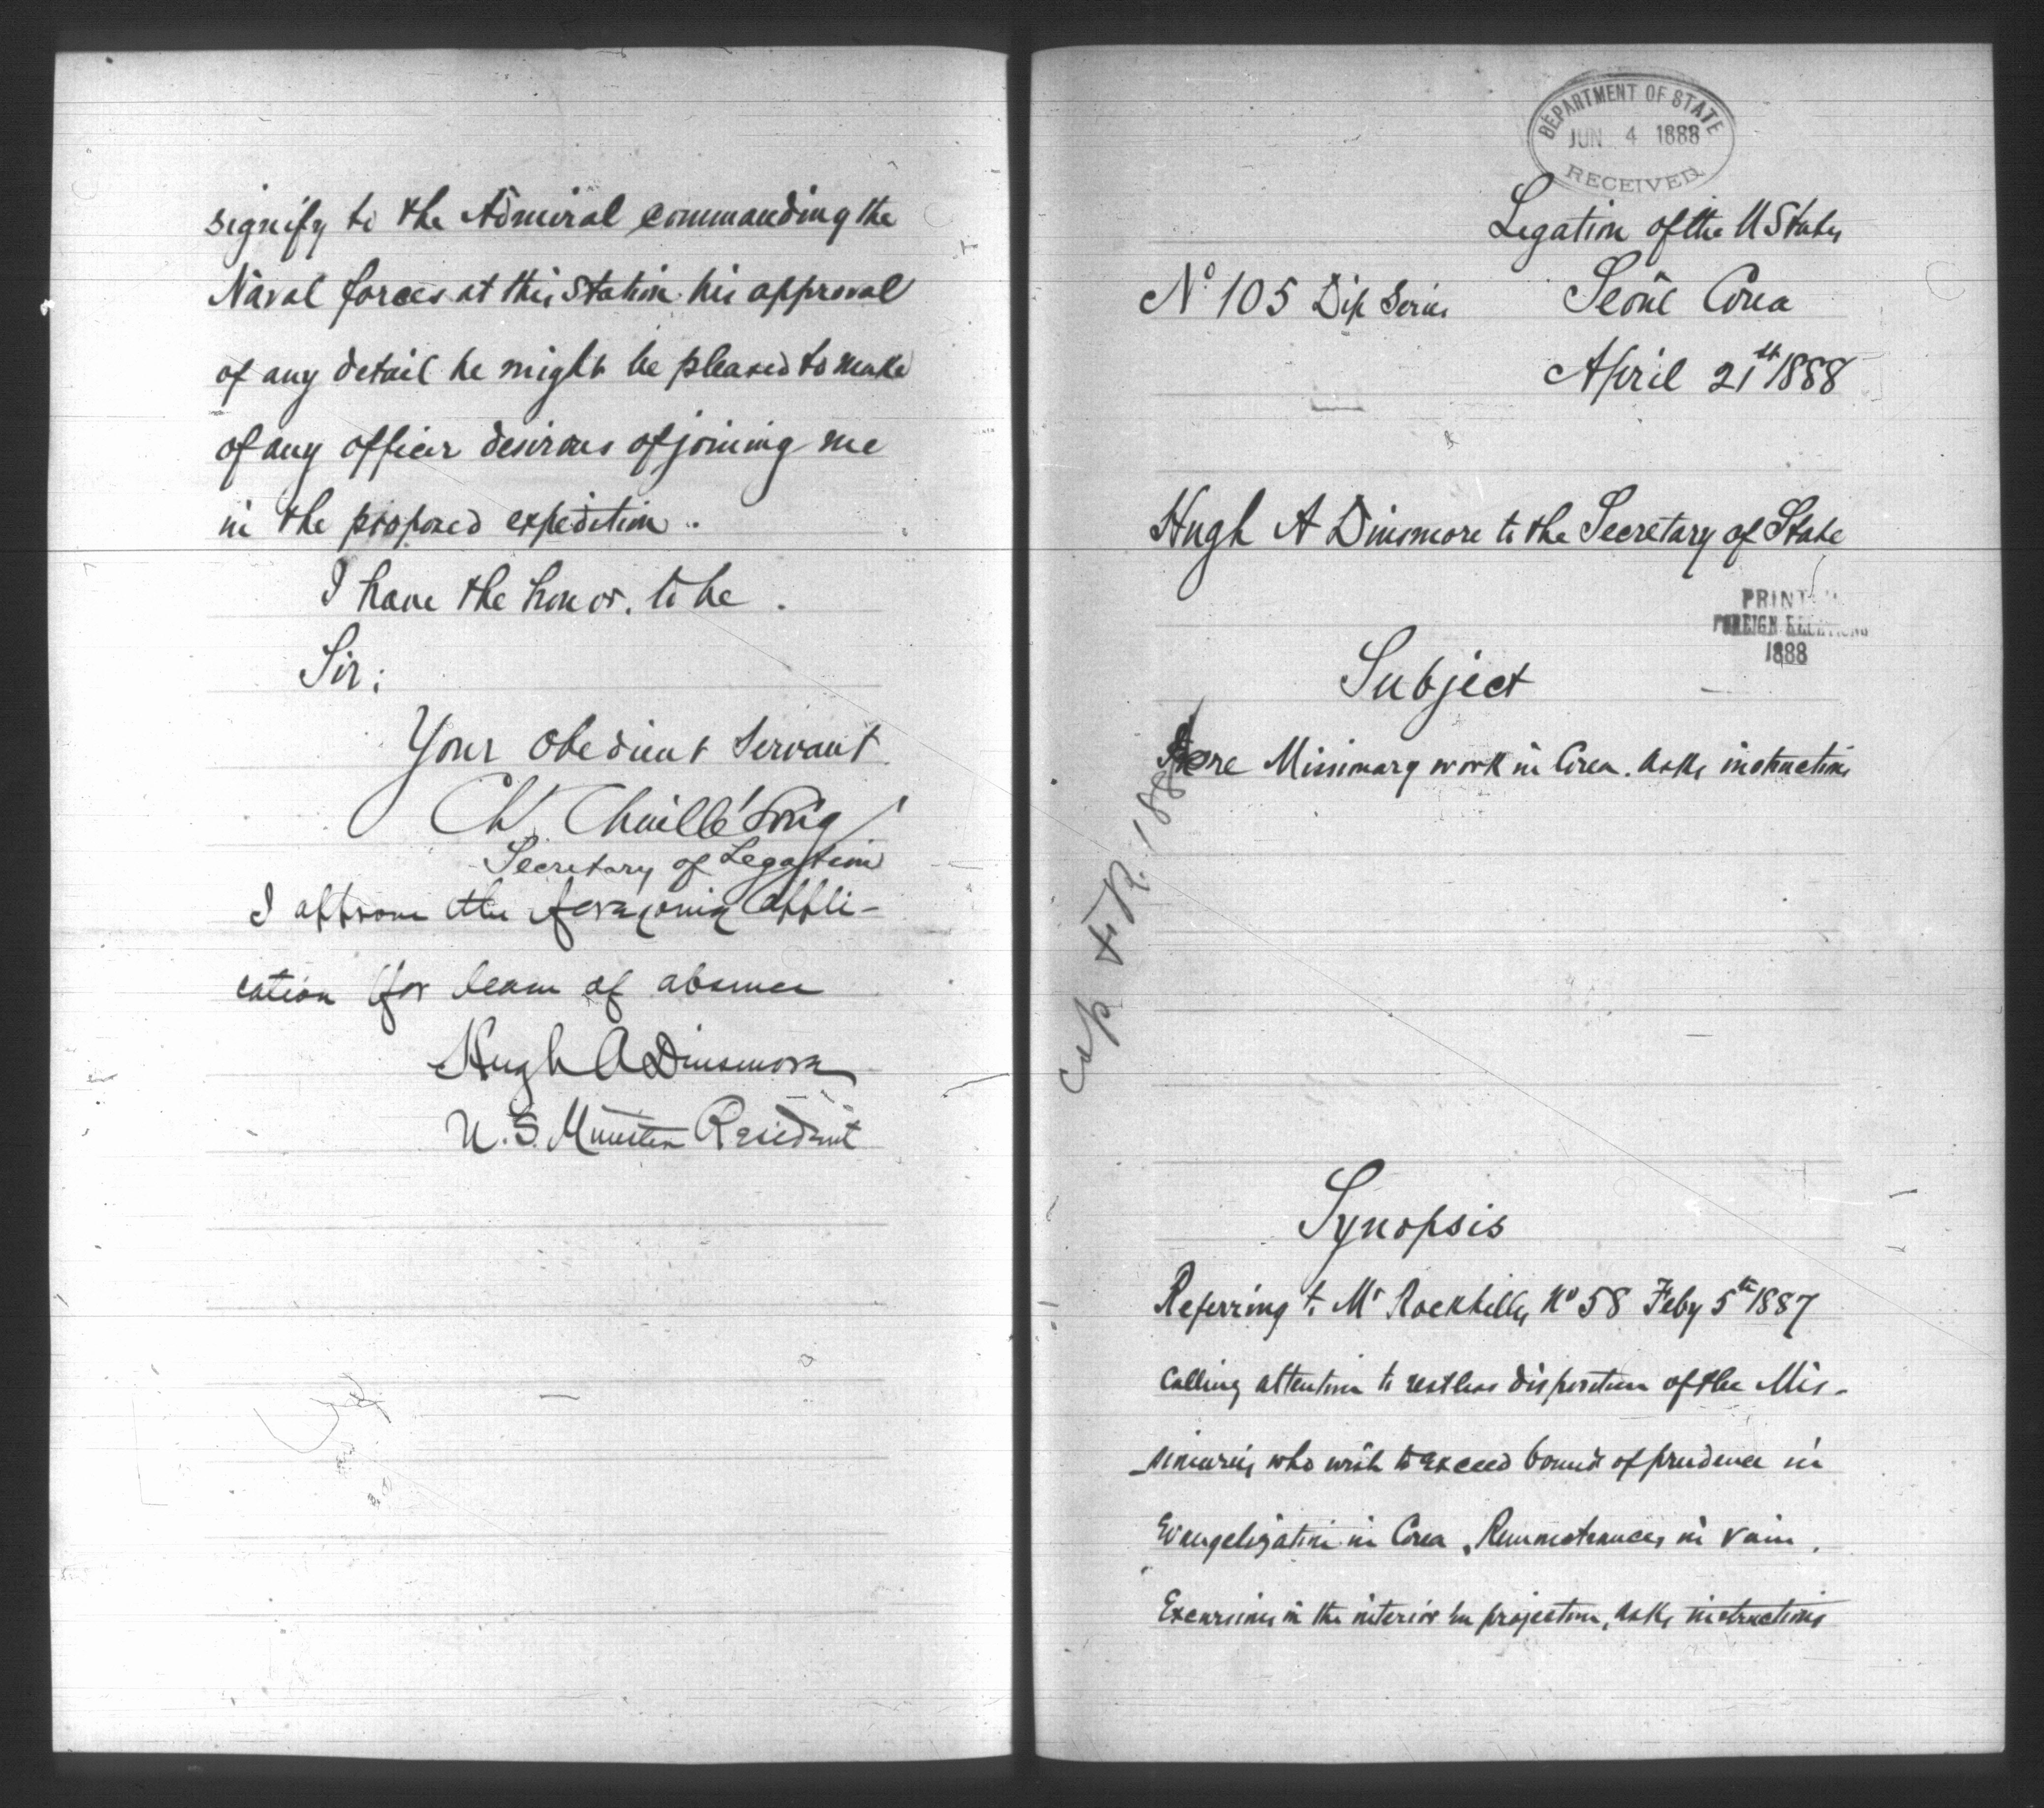 signify to the Admiral commanding the
Naval forces at this Station his approval
of any detail he might be pleased to make
of any officer desirous of joining me
in the proposed expedition.
I have the honor. to be.
Sir;
Your Obedient Servant
Ch. Chaillé Long
Secretary of Legation
I approve the foregoing appli-
cation for leave of absence
Hugh A Dinsmore
U.S. Minister Resident
DEPARTMENT OF STATE
JUN 4 1888
RECEIVED
Legation of the U States
No 105 Dip Series Seoul Corea
April 21st 1888
Hugh A Dinsmore to the Secretary of State
PRINTED
FOREIGN RELATIONS
1888
Subject
Missionary work in Corea. Asks instructions
F.R. 188
Synopsis
Referring to Mr Rockhills No 58 Feby 5th 1887
Calling attention to restless disposition of the Mis-
sionaries who wish to exceed bounds of prudence in
Evangelization in Corea. Remonstrances in vain.
Excursions in the interior in projection, asks instructions